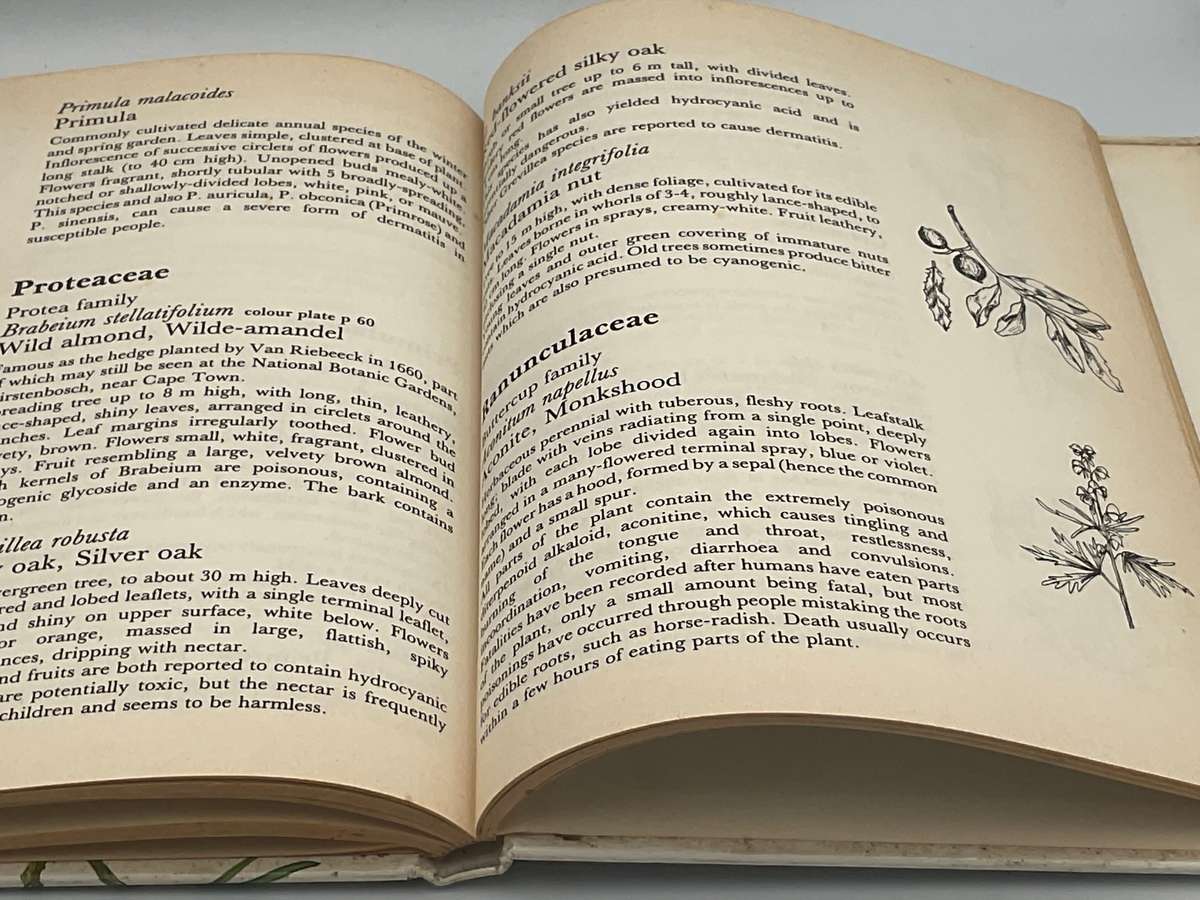 Primula malacoides
Primula
Commonly cultivated delicate annual species of the winter
and spring garden. Leaves simple, clustered at base of plant.
Inflorescence of successive circlets of flowers produced up a
long stalk (to 40 cm high). Unopened buds mealy-white.
Flowers fragrant, shortly tubular with 5 broadly-spreading,
notched or shallowly-divided lobes, white, pink, or mauve.
This species and also P. auricula, P. obconica (Primrose) and
P. sinensis, can cause a severe form of dermatitis in
susceptible people.
Proteaceae
Protea family
Brabeium stellatifolium colour plate p 60
Wild almond, Wilde-amandel
Famous as the hedge planted by Van Riebeeck in 1660, part
of which may still be seen at the National Botanic Gardens,
irstenbosch, near Cape Town.
reading tree up to 8 m high, with long, thin, leathery,
ce-shaped, shiny leaves, arranged in circlets around the
nches. Leaf margins irregularly toothed. Flower bud
vety, brown. Flowers small, white, fragrant, clustered in
ys. Fruit resembling a large, velvety brown almond.
h kernels of Brabeium are poisonous, containing a
ogenic glycoside and an enzyme. The bark contains
n.
illea robusta
oak, Silver oak
vergreen tree, to about 30 m high. Leaves deeply cut
red and lobed leaflets, with a single terminal leaflet,
nd shiny on upper surface, white below. Flowers
or orange, massed in large, flattish, spiky
nces, dripping with nectar.
nd fruits are both reported to contain hydrocyanic
are potentially toxic, but the nectar is frequently
children and seems to be harmless.
banksii
flowered silky oak
small tree up to 6 m tall, with divided leaves.
red flowers are massed into inflorescences up to
long.
species has also yielded hydrocyanic acid and is
dangerous.
Grevillea species are reported to cause dermatitis.
adamia integrifolia
acadamia nut
to 15 m high, with dense foliage, cultivated for its edible
Leaves borne in whorls of 3-4, roughly lance-shaped, to
cm long. Flowers in sprays, creamy-white. Fruit leathery,
osing a single nut.
ng leaves and outer green covering of immature nuts
tain hydrocyanic acid. Old trees sometimes produce bitter
which are also presumed to be cyanogenic.
Ranunculaceae
Buttercup family
Aconitum napellus
Aconite, Monkshood
Herbaceous perennial with tuberous, fleshy roots. Leafstalk
long; blade with veins radiating from a single point, deeply
lobed, with each lobe divided again into lobes. Flowers
arranged in a many-flowered terminal spray, blue or violet.
Each flower has a hood, formed by a sepal (hence the common
name) and a small spur.
All parts of the plant contain the extremely poisonous
diterpenoid alkaloid, aconitine, which causes tingling and
burning of the tongue and throat, restlessness,
incoordination, vomiting, diarrhoea and convulsions.
Fatalities have been recorded after humans have eaten parts
of the plant, only a small amount being fatal, but most
poisonings have occurred through people mistaking the roots
for edible roots, such as horse-radish. Death usually occurs
within a few hours of eating parts of the plant.